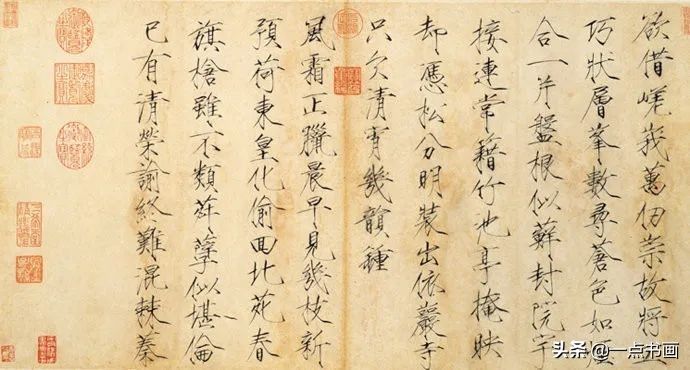 欲借嵯峩萬仞崇故將工
巧狀層峯數尋蒼色如煙
合一片盤根似蘚封院宇
接連常籍竹池亭掩映
却憑松分明裝出依巖寺
只欠清宵幾韻鍾
風霜正臘晨早見幾枝新
預荷東皇化偷回北苑春
旗槍雖不類荈孽似堪倫
已有清榮諭終難混棘蓁
头条 @一点书画